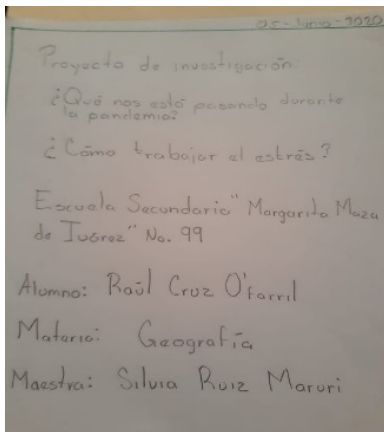 05-Junio-2020
Proyecto de investigación:
¿Qué nos está pasando durante
la pandemia?
¿Cómo trabajar el estrés?
Escuela Secundaria "Margarita Maza
de Juárez" No. 99
Alumno: Raúl Cruz O'farril
Materia: Geografía
Maestra: Silvia Ruiz Maruri